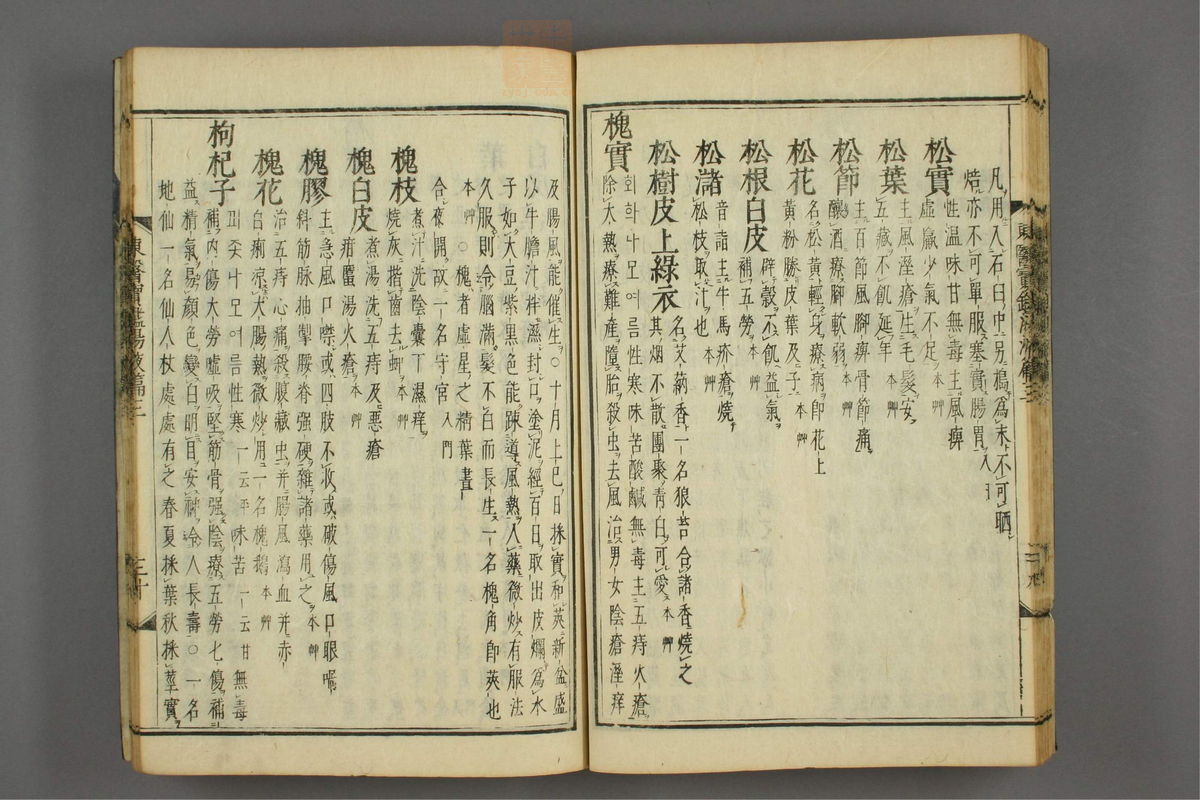 凡用入石臼中另搗爲末不可晒
焙亦不可單服塞實腸胃入門
松實
性溫味甘無毒主風痺
虛羸少氣不足本艸
松葉
主風溼瘡生毛髮安
五藏不飢延年本艸
松節
主百節風脚痺骨節痛
釀酒療脚軟弱本艸
松花
名松黃輕身療病卽花上
黃粉勝皮葉及子本艸
松根白皮
辟穀不飢益氣
補五勞本艸
松瀦
音諸主牛馬疥瘡燒
松枝取汁也本艸
松樹皮上綠衣
名艾蒳香一名狼苔合諸香燒之
其烟不散團聚靑白可愛本艸
槐實
회화나모여름性寒味苦酸鹹無毒主五痔火瘡
除大熱療難産墮胎殺虫去風治男女陰瘡溼痒
及腸風能催生○十月上巳日採實和莢新盆盛
以牛膽汁拌濕封口塗泥經百日取出皮爛爲水
子如大豆紫黑色能踈導風熱入藥微炒有服法
久服則令腦滿髮不白而長生一名槐角卽莢也
本艸○槐者虛星之精葉晝
合夜開故一名守宮入門
槐枝
煮汁洗陰囊下濕痒
燒灰揩齒去蚛本艸
槐白皮
煮湯洗五痔及惡瘡
疳䘌湯火瘡本艸
槐膠
主急風口噤或四肢不收或破傷風口眼喎
斜筋脉抽掣腰脊强硬雜諸藥用之本艸
槐花
治五痔心痛殺腹藏虫并腸風瀉血并赤
白痢凉大腸熱微炒用一名槐鵝本艸
枸杞子
괴좃나모여름性寒一云平味苦一云甘無毒
補內傷大勞噓吸堅筋骨强陰療五勞七傷補
益精氣易顔色變白明目安神令人長壽○一名
地仙一名仙人杖處處有之春夏採葉秋採莖實
東醫寶鑑湯液篇三
三十